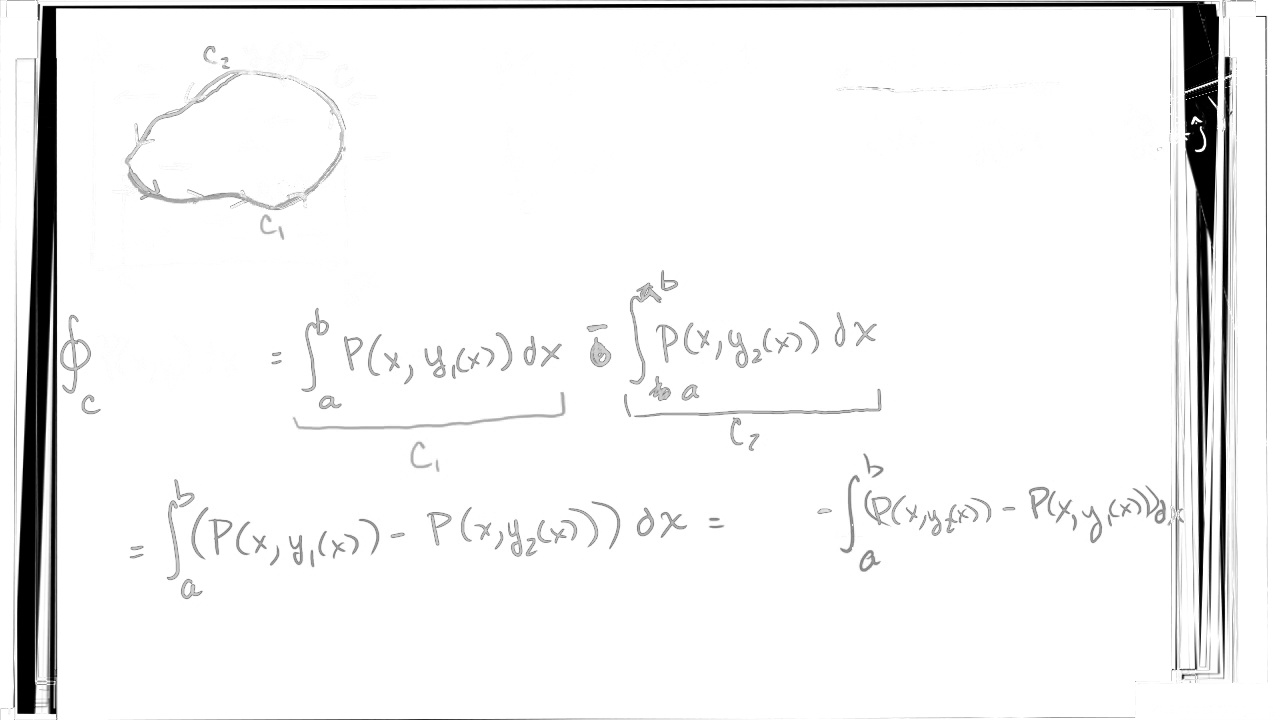 C₂
ĵ
C₁
∮_C = ∫_a^b P(x, y₁(x)) dx - ∫_a^b P(x, y₂(x)) dx
C₁ C₂
= ∫_a^b (P(x, y₁(x)) - P(x, y₂(x))) dx = - ∫_a^b (P(x, y₂(x)) - P(x, y₁(x))) dx